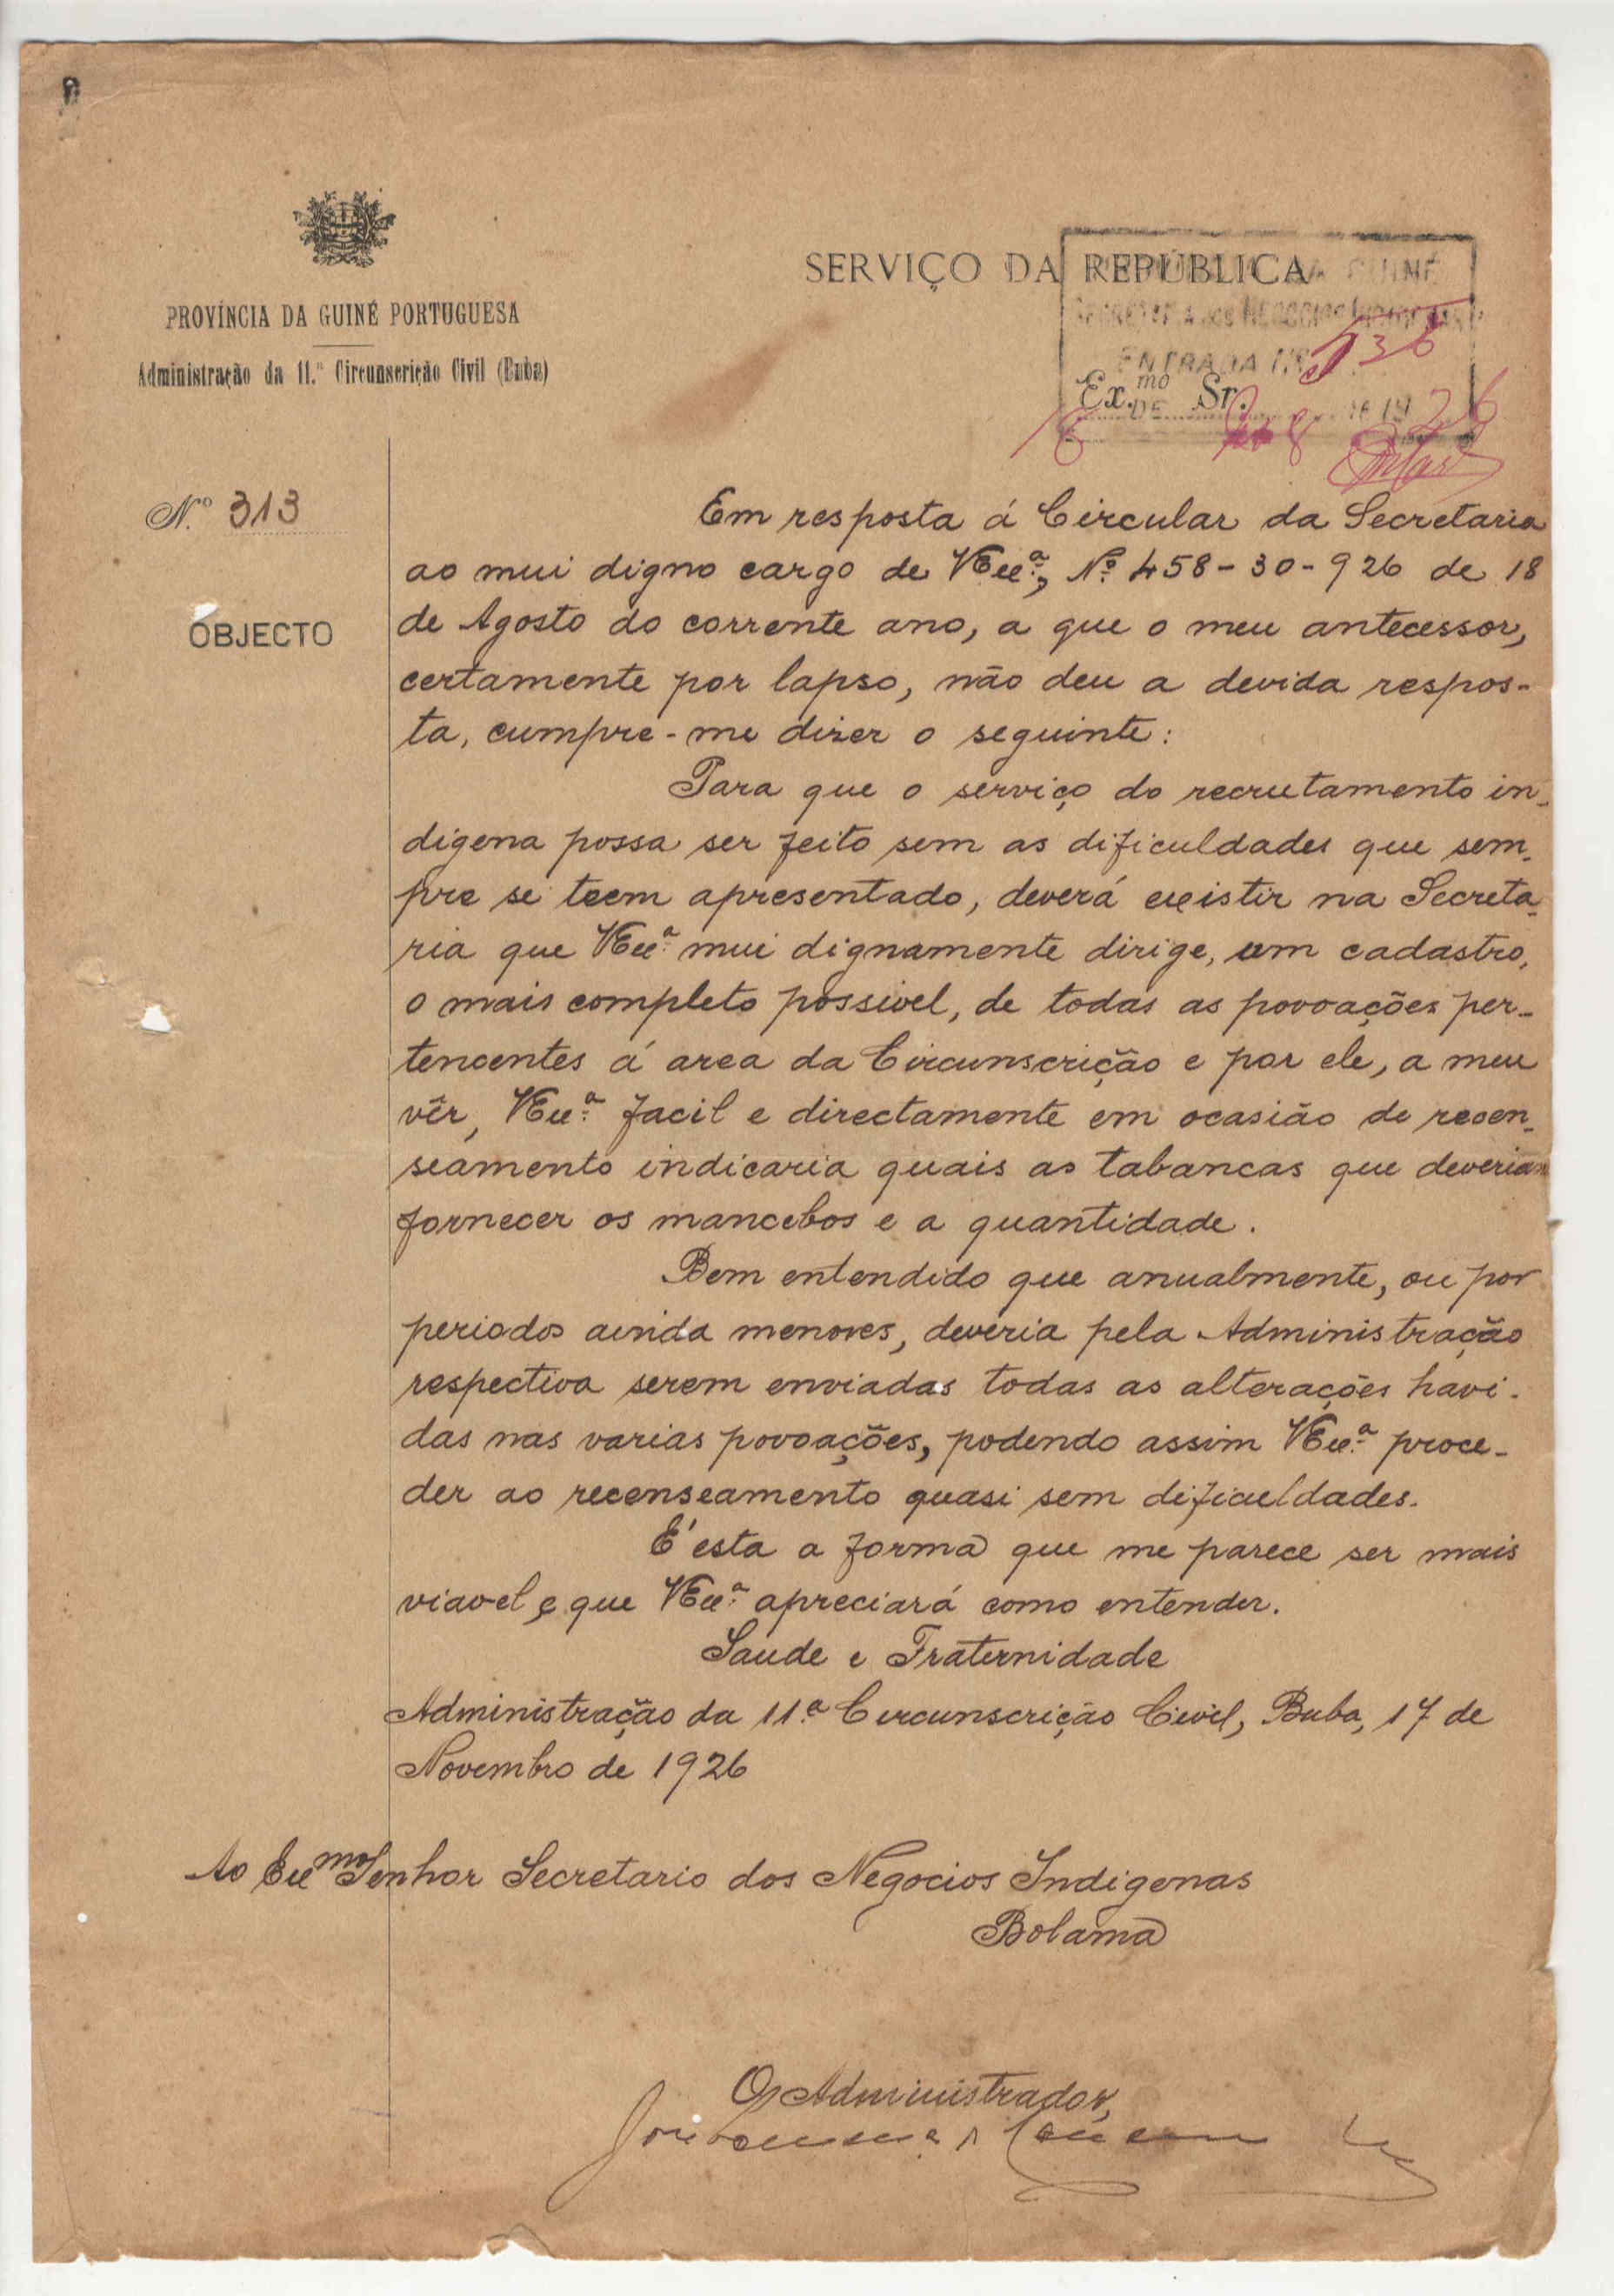 SERVIÇO DA REPÚBLICA
PROVÍNCIA DA GUINÉ PORTUGUESA
Administração da 11.ª Circunscrição Civil (Buba)
ENTRADA Nº 536
Ex.mo Sr.
DE
18 8 1926
N.º 313
OBJECTO
Em resposta á Circular da Secretaria
ao mui digno cargo de VExª, Nº 458-30-926 de 18
de Agosto do corrente ano, a que o meu antecessor,
certamente por lapso, não deu a devida respos-
ta, cumpre-me dizer o seguinte:
Para que o serviço do recrutamento in-
digena possa ser feito sem as dificuldades que sem-
pre se teem apresentado, deverá existir na Secreta-
ria que VExª mui dignamente dirige, um cadastro,
o mais completo possivel, de todas as povoações per-
tencentes á area da Circunscrição e por ele, a meu
vêr, VExª facil e directamente em ocasião de recen-
seamento indicaria quais as tabancas que deveriam
fornecer os mancebos e a quantidade.
Bem entendido que anualmente, ou por
periodos ainda menores, deveria pela Administração
respectiva serem enviadas todas as alterações havi-
das nas varias povoações, podendo assim VExª proce-
der ao recenseamento quasi sem dificuldades.
É esta a forma que me parece ser mais
viavel e que VExª apreciará como entender.
Saude e Fraternidade
Administração da 11ª Circunscrição Civil, Buba, 17 de
Novembro de 1926
Ao Exmo Senhor Secretario dos Negocios Indigenas
Bolama
O Administrador,